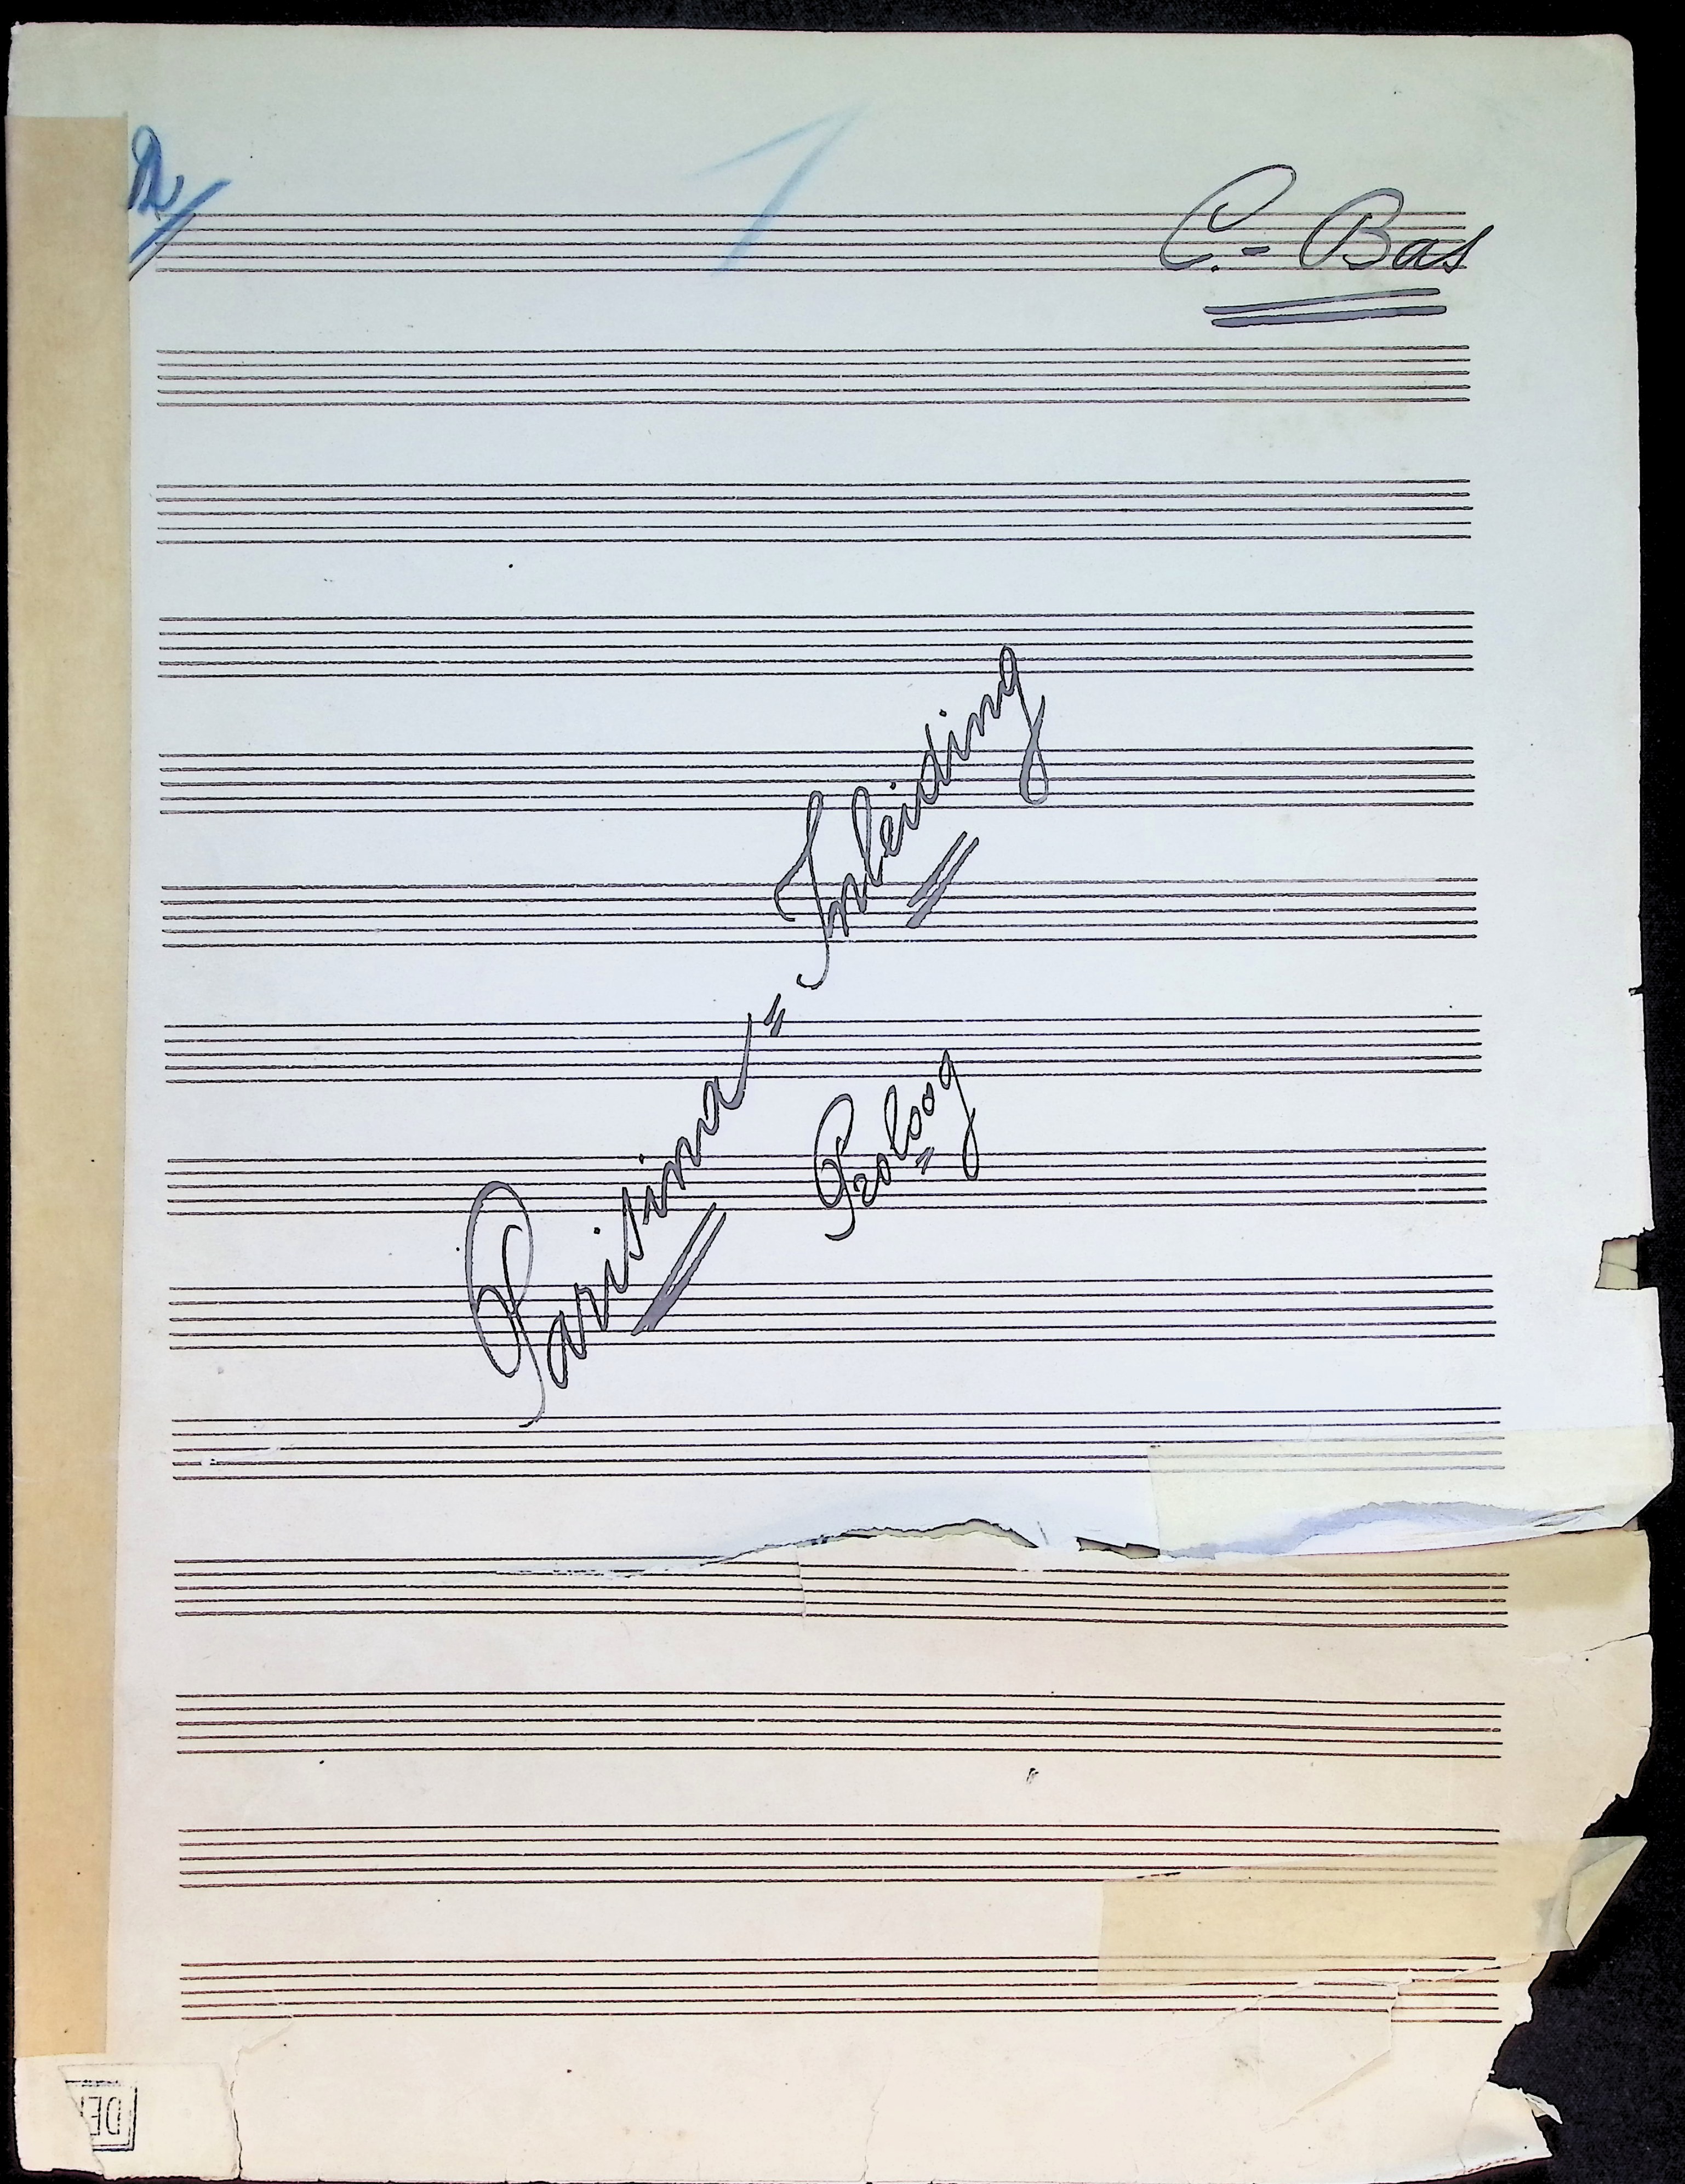 1
C.- Bas
Parisina = Inleiding
Proloog
DE